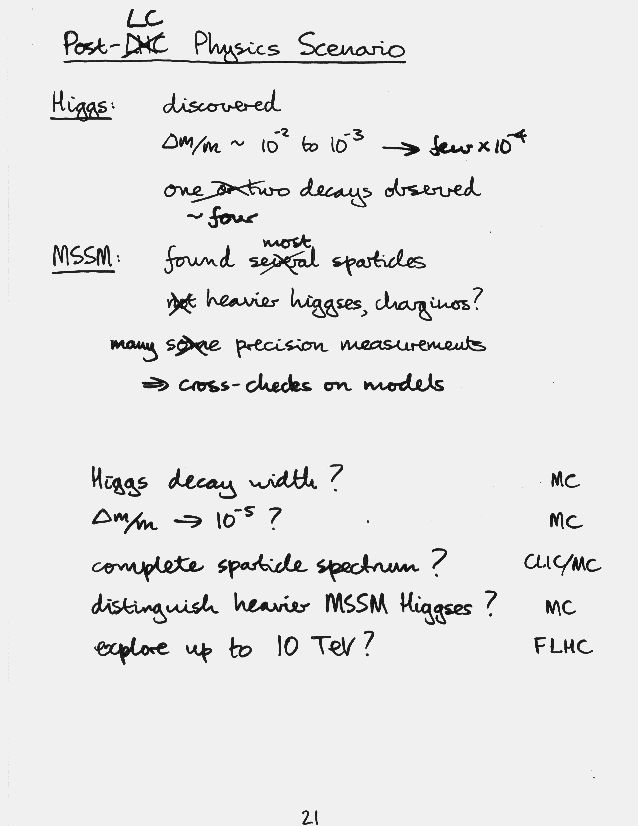 LC
Post-LHC Physics Scenario
Higgs: discovered
Δm/m ~ 10⁻² to 10⁻³ → few × 10⁻⁴
one or two decays observed
~ four
most
MSSM: found several sparticles
not heavier higgses, charginos?
many some precision measurements
⇒ cross-checks on models
Higgs decay width? MC
Δm/m → 10⁻⁵ ? MC
complete sparticle spectrum? CLIC/MC
distinguish heavier MSSM Higgses? MC
explore up to 10 TeV? FLHC
21